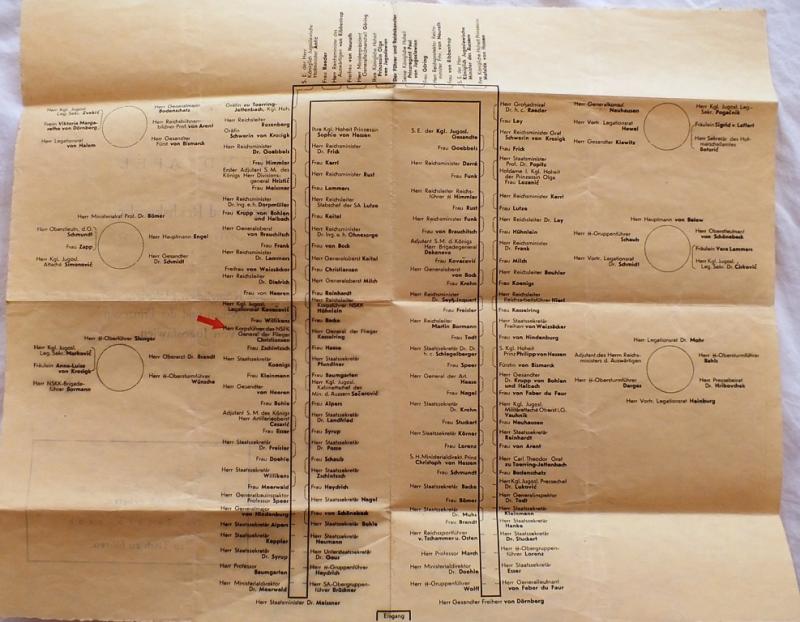 S. E. der Herr
Königlich Jugoslawische
Hofminister Antić
Frau Raeder
Herr Reichsminister des
Auswärtigen von Ribbentrop
Freifrau von Neurath
Herr Ministerpräsident
Generalfeldmarschall Göring
Ihre Königliche Hoheit
Prinzessin Olga
von Jugoslawien
Der Führer und Reichskanzler
Seine Königliche Hoheit
Prinzregent Paul
von Jugoslawien
Frau Göring
Herr Reichsminister Frhr. von Neurath
Frau von Ribbentrop
S. E. der Herr
Königlich Jugoslawische
Minister des Äussern
Ihre Königliche Hoheit Prinzessin
Mafalda von Hessen
Herr Kgl. Jugosl.
Leg.-Sekr. Zuekić
Freiin Viktoria Marga-
retha von Dörnberg
Herr Legationsrat
von Halem
Herr Generalmajor
Bodenschatz
Herr Reichsbühnen-
bildner Prof. von Arent
Herr Gesandter
Fürst von Bismarck
Herr Ministerialrat Prof. Dr. Börner
Herr Oberstleutn. d.G.
Schmundt
Frau Zapp
Herr Kgl. Jugosl.
Attaché Simonović
Herr Hauptmann Engel
Herr Gesandter
Dr. Schmidt
Herr Kgl. Jugosl.
Leg. Sekr. Marković
Fräulein Anna-Luise
von Krosigk
Herr NSKK-Brigade-
führer Bormann
Herr Oberarzt Dr. Brandt
Herr ᛋᛋ-Obersturmführer
Wünsche
Gräfin zu Toerring-
Jettenbach, Kgl. Hoh.
Herr Reichsleiter
Rosenberg
Gräfin
Schwerin von Krosigk
Herr Reichsminister
Dr. Goebbels
Frau Himmler
Erster Adjutant S. M. des
Königs Herr Divisions-
general Hristić
Frau Meissner
Herr Reichsminister
Dr. Ing. e. h. Dorpmüller
Frau Krupp von Bohlen
und Halbach
Herr Generaloberst
von Brauchitsch
Frau Frank
Herr Reichsminister
Dr. Lammers
Freifrau von Weizsäcker
Herr Reichsleiter
Dr. Dietrich
Frau von Heeren
Herr Kgl. Jugosl.
Legationsrat Kovacević
Frau Willikens
Herr Korpsführer des NSFK
General der Flieger
Christiansen
Frau Zschintzsch
Herr Staatssekretär
Koenigs
Frau Kleinmann
Herr Gesandter
von Heeren
Frau Bohle
Adjutant S. M. des Königs
Herr Artillerieoberst
Frau Esser
Herr Staatssekretär
Dr. Freisler
Frau Doehle
Herr Staatssekretär
Willikens
Frau Meerwald
Herr Generalbauinspektor
Professor Speer
Herr Generalmajor
von Hindenburg
Herr Staatssekretär Alpers
Herr Staatssekretär
Keppler
Herr Staatssekretär
Dr. Syrup
Herr Professor
Baumgarten
Herr Ministerialdirektor
Dr. Meerwald
Herr Staatsminister Dr. Meissner
Ihre Kgl. Hoheit Prinzessin
Sophie von Hessen
Herr Reichsminister
Dr. Frick
Frau Kerrl
Herr Reichsminister Rust
Frau Lammers
Herr Reichsleiter
Stabschef der SA. Lutze
Frau Keitel
Herr Reichsminister
Dr. Ing. e. h. Ohnesorge
Frau von Bock
Herr Generaloberst Keitel
Frau Christiansen
Herr Generaloberst Milch
Frau Reinhardt
Herr Reichsleiter
Korpsführer NSKK
Hühnlein
Frau Backe
Herr General der Flieger
Kesselring
Frau Haase
Herr Staatssekretär
Pfundtner
Frau Baumgarten
Herr Kgl. Jugosl.
Kabinettschef des
Min. d. Äussern Sećerović
Frau Alpers
Herr Staatssekretär
Dr. Landfried
Frau Syrup
Herr Staatssekretär
Dr. Posse
Frau Schaub
Herr Staatssekretär
Zschintzsch
Frau Heydrich
Herr Staatssekretär Nagel
Frau von Schönebeck
Herr Staatssekretär Bohle
Herr Staatssekretär
Neumann
Herr Unterstaatssekretär
Dr. Gaus
Herr ᛋᛋ-Gruppenführer
Heydrich
Herr SA-Obergruppen-
führer Brückner
S. E. der Kgl. Jugosl.
Gesandte
Frau Goebbels
Herr Reichsminister Darré
Frau Funk
Herr Reichsleiter Reichs-
führer ᛋᛋ Himmler
Frau Rust
Herr Reichsminister Funk
Frau von Brauchitsch
Adjutant S.M. d.Königs
Herr Brigadegeneral
Dekaneva
Frau Kovacević
Herr Generaloberst
von Bock
Frau Krohn
Herr Reichsminister
Dr. Seyß-Inquart
Frau Freisler
Herr Reichsleiter
Martin Bormann
Frau Todt
Herr Staatssekretär Dr. Dr.
h. c. Schlegelberger
Frau Speer
Herr General der Art.
Haase
Frau Nagel
Herr Staatssekretär
Dr. Krohn
Frau Stuckart
Herr Staatssekretär Körner
Frau Lorenz
S. H. Ministerialdirekt. Prinz
Christoph von Hessen
Frau Schmundt
Herr Staatssekretär Backe
Frau Börner
Herr Staatssekretär
Dr. Muhs
Frau Brandt
Herr Reichssportführer
v. Tschammer u. Osten
Herr Professor March
Herr Ministerialdirektor
Dr. Doehle
Herr ᛋᛋ-Gruppenführer
Wolff
Herr Gesandter Freiherr von Dörnberg
Herr Großadmiral
Dr. h. c. Raeder
Frau Ley
Herr Reichsminister Graf
Schwerin von Krosigk
Frau Frick
Herr Staatsminister
Prof. Dr. Popitz
Hofdame I. Kgl. Hoheit
der Prinzessin Olga
Frau Lozanić
Herr Reichsminister Kerrl
Frau Lutze
Herr Reichsleiter Dr. Ley
Frau Hühnlein
Herr Reichsminister
Dr. Frank
Frau Milch
Herr Reichsleiter Bouhler
Frau Koenigs
Herr Reichsleiter
Reichsarbeitsführer Hierl
Frau Kesselring
Herr Staatssekretär
Freiherr von Weizsäcker
Frau von Hindenburg
S. Kgl. Hoheit
Prinz Philipp von Hessen
Fürstin von Bismarck
Herr Gesandter
Dr. Krupp von Bohlen
und Halbach
Frau von Faber du Faur
Herr Kgl. Jugosl.
Militärattaché Oberst i.G.
Vauhnik
Frau Neuhausen
Herr Staatssekretär
Reinhardt
Frau von Arent
Herr Carl Theodor Graf
zu Toerring-Jettenbach
Frau Bodenschatz
Herr Kgl. Jugosl. Pressechef
Dr. Luković
Herr Generalinspektor
Dr. Todt
Herr Staatssekretär
Kleinmann
Herr Staatssekretär
Hanke
Herr Staatssekretär
Dr. Stuckart
Herr ᛋᛋ-Obergruppen-
führer Lorenz
Herr Staatssekretär
Esser
Herr Generalleutnant
von Faber du Faur
Herr Generalkonsul
Neuhausen
Herr Vortr. Legationsrat
Hewel
Herr Gesandter Kiewitz
Herr Kgl. Jugosl. Leg.-
Sekr. Pogačnik
Fräulein Sigrid v. Laffert
Herr Sekretär des Hof-
marschallamtes
Batorić
Herr Hauptmann von Below
Herr ᛋᛋ-Gruppenführer
Schaub
Herr Vortr. Legationsrat
Dr. Schmidt
Herr Oberstleutnant
von Schönebeck
Fräulein Vera Lammers
Herr Kgl. Jugosl.
Leg. Sekr. Dr. Cirković
Herr Legationsrat Dr. Mohr
Adjutant des Herrn Reichs-
ministers d. Auswärtigen
Herr ᛋᛋ-Obersturmführer
Darges
Herr ᛋᛋ-Obersturmführer
Bahls
Herr Pressebeirat
Dr. Hribovschek
Herr Vortr. Legationsrat Heinburg
Eingang